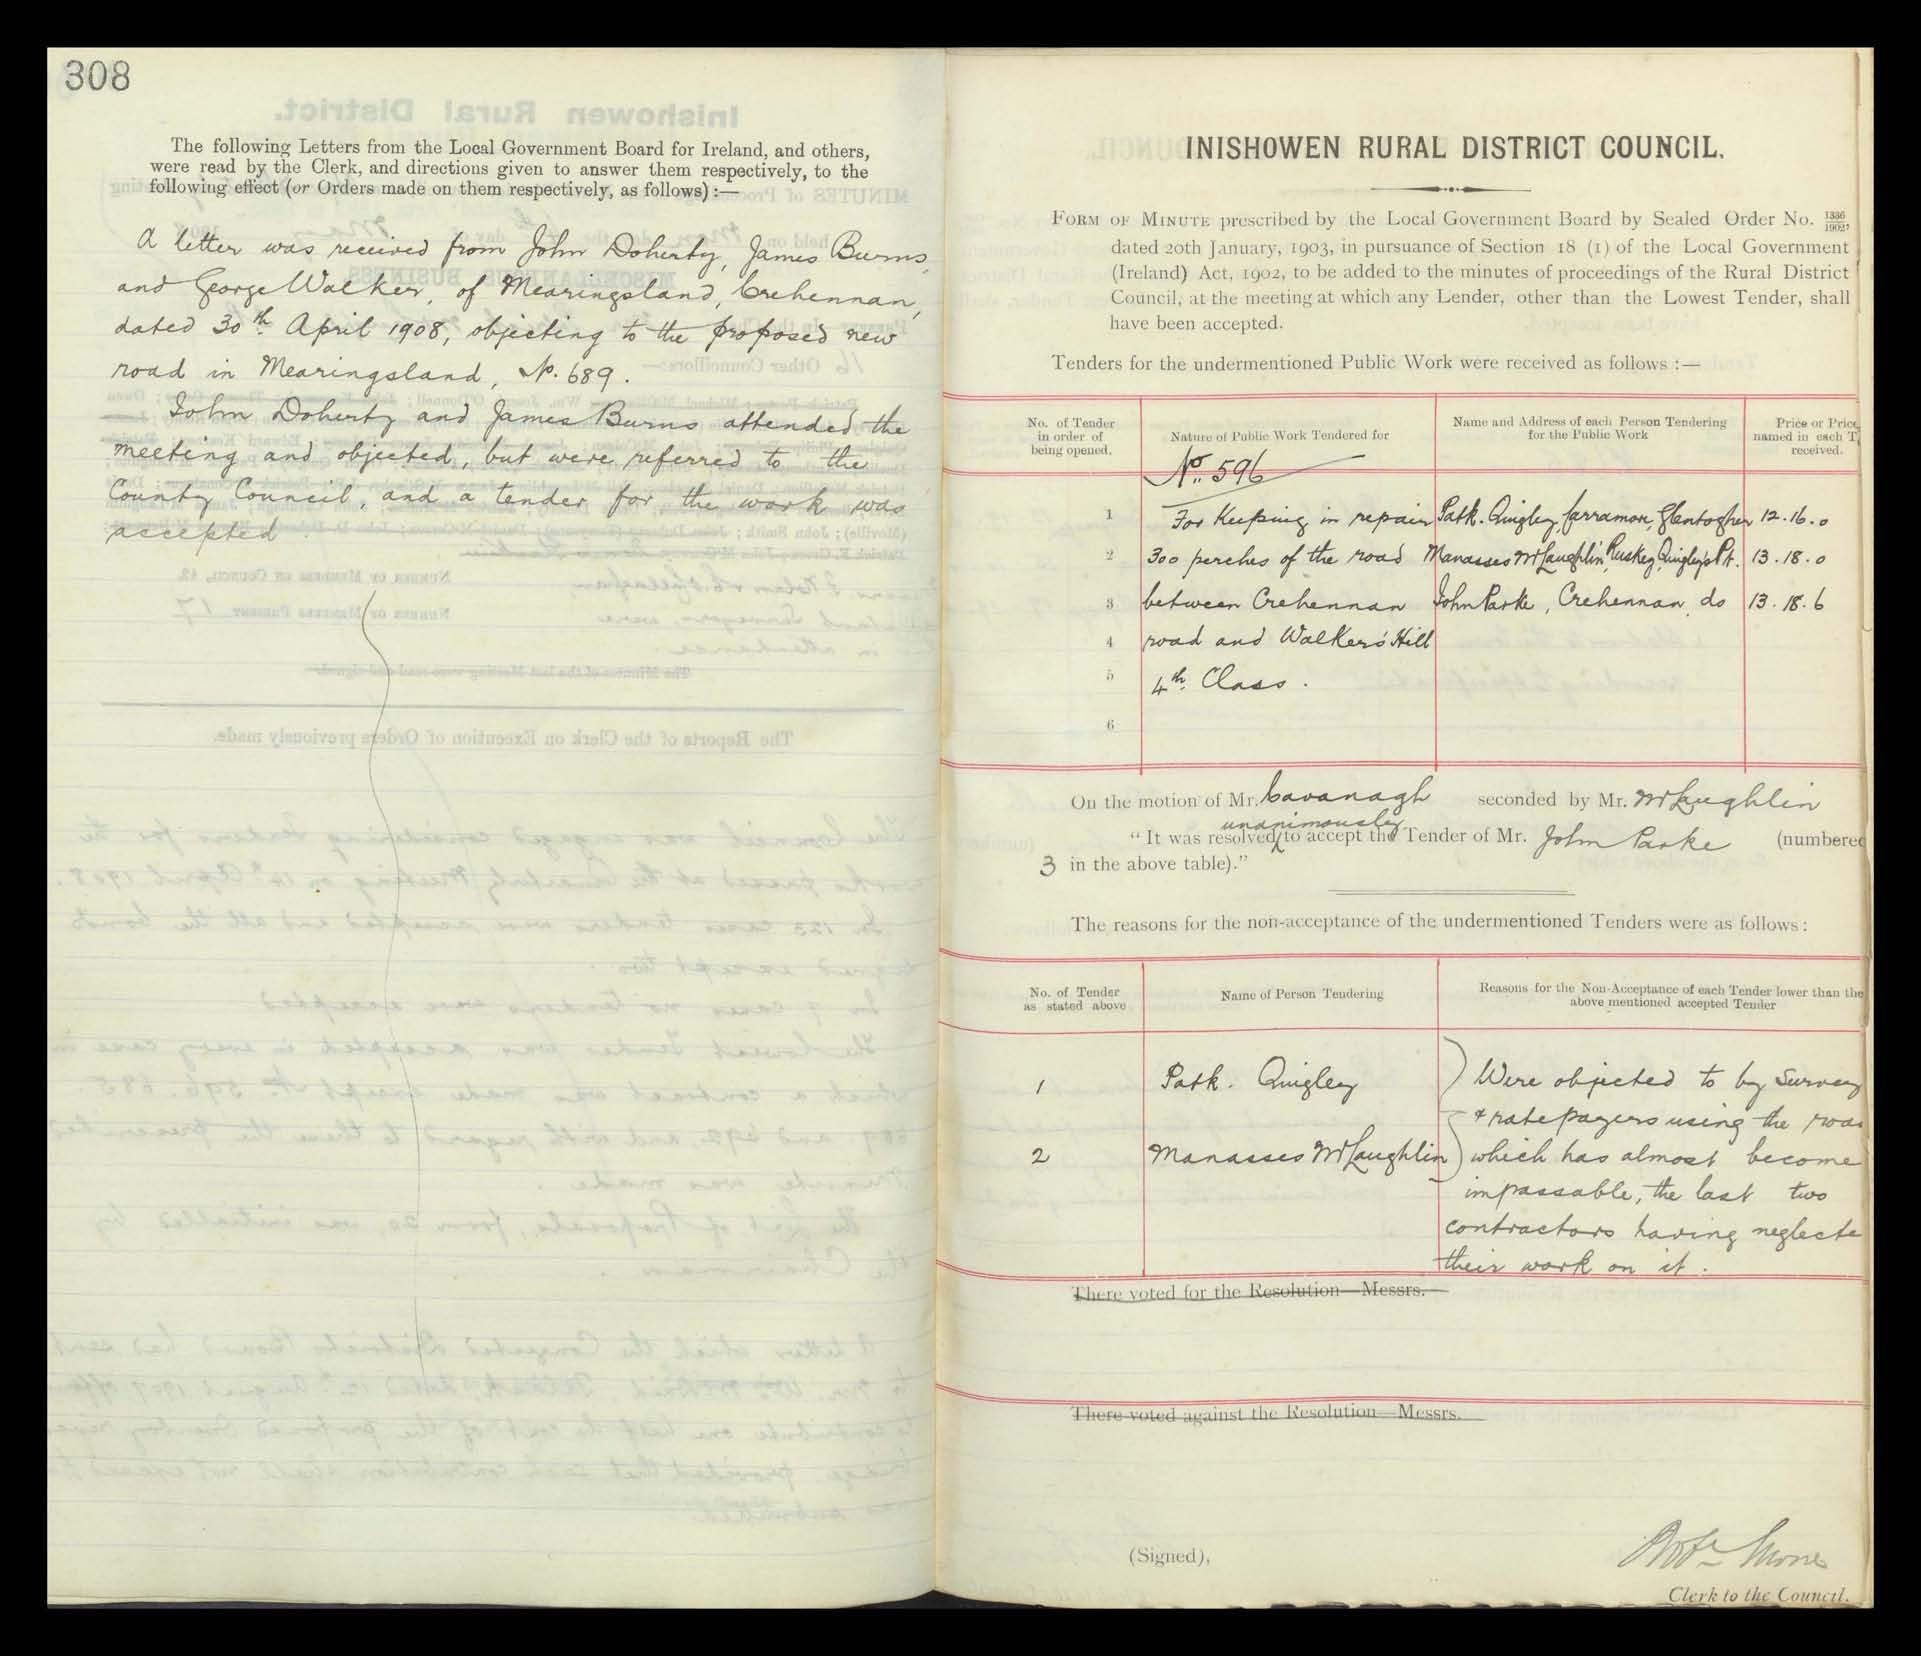 308
The following Letters from the Local Government Board for Ireland, and others,
were read by the Clerk, and directions given to answer them respectively, to the
following effect (or Orders made on them respectively, as follows) :—
A letter was received from John Doherty, James Burns,
and George Walker, of Mearingsland, Crehennan,
dated 30th April 1908, objecting to the proposed new
road in Mearingsland, No. 689.
John Doherty and James Burns attended the
meeting and objected, but were referred to the
County Council, and a tender for the work was
accepted
INISHOWEN RURAL DISTRICT COUNCIL.
FORM OF MINUTE prescribed by the Local Government Board by Sealed Order No. 1336/1902,
dated 20th January, 1903, in pursuance of Section 18 (1) of the Local Government
(Ireland) Act, 1902, to be added to the minutes of proceedings of the Rural District
Council, at the meeting at which any Lender, other than the Lowest Tender, shall
have been accepted.
Tenders for the undermentioned Public Work were received as follows :—
No. of Tender in order of being opened. Nature of Public Work Tendered for Name and Address of each Person Tendering for the Public Work Price or Price named in each T received.
No. 596
1 For Keeping in repair Patk. Quigley, Carramore, Glentogher 12.16.0
2 300 perches of the road Manasses McLaughlin, Ruskey, Quigley's Pt. 13.18.0
3 between Crehennan John Parke, Crehennan do 13.18.6
4 road and Walker's Hill
5 4th Class.
6
On the motion of Mr. Cavanagh seconded by Mr. McLaughlin
unanimously
"It was resolved to accept the Tender of Mr. John Parke (numbered
3 in the above table)."
The reasons for the non-acceptance of the undermentioned Tenders were as follows :
No. of Tender as stated above Name of Person Tendering Reasons for the Non-Acceptance of each Tender lower than the above mentioned accepted Tender
1 Patk. Quigley Were objected to by Survey
& ratepayers using the roa
2 Manasses McLaughlin which has almost become
impassable, the last two
contractors having neglecte
their work on it.
There voted for the Resolution—Messrs.
There voted against the Resolution—Messrs.
(Signed),
Clerk to the Council.